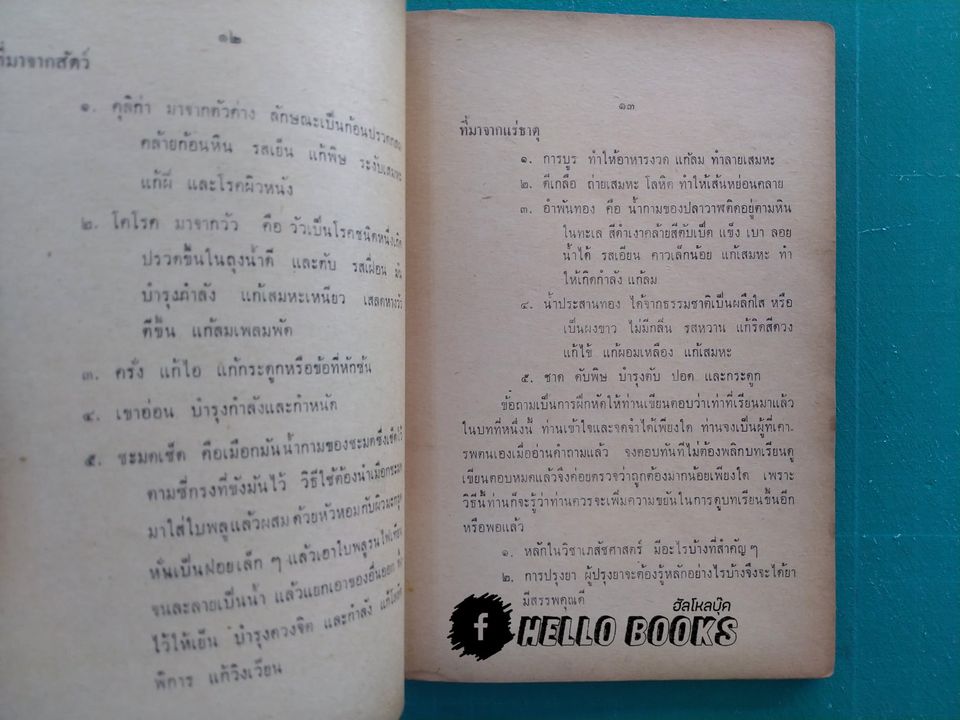 ๑๒
ที่มาจากสัตว์
๑. คุลิก่า มาจากตัวค่าง ลักษณะเป็นก้อนปรวดกลม
คล้ายก้อนหิน รสเย็น แก้พิษ ระงับเสมหะ
แก้ฝี และโรคผิวหนัง
๒. โคโรค มาจากวัว คือ วัวเป็นโรคชนิดหนึ่งเกิด
ปรวดขึ้นในถุงน้ำดี และตับ รสเฝื่อน มัน
บำรุงกำลัง แก้เสมหะเหนียว เสลดหาง
ดีขึ้น แก้ลมเพลมพัด
๓. ครั่ง แก้ไอ แก้กระดูกหรือข้อที่หักช้น
๔. เขาอ่อน บำรุงกำลังและกำหนัด
๕. ชะมดเช็ด คือเมือกมันน้ำกามของชะมดซึ่งเช็ดไว้
ตามซี่กรงที่ขังมันไว้ วิธีใช้ต้องนำเมือกชะมด
มาใส่ใบพลูแล้วผสมด้วยหัวหอมกับผิวมะกรูด
หั่นเป็นฝอยเล็ก ๆ แล้วเอาใบพลูรนไฟเทียน
จนละลายเป็นน้ำ แล้วแยกเอาของอื่นออก
ไว้ให้เย็น บำรุงดวงจิต และกำลัง แก้โลหิต
พิการ แก้วิงเวียน
๑๓
ที่มาจากแร่ธาตุ
๑. การบูร ทำให้อาหารงวด แก้ลม ทำลายเสมหะ
๒. ดีเกลือ ถ่ายเสมหะ โลหิต ทำให้เส้นหย่อนคลาย
๓. อำพันทอง คือ น้ำกามของปลาวาฬติดอยู่ตามหิน
ในทะเล สีดำเงาคล้ายสีตับเป็ด แข็ง เบา ลอย
น้ำได้ รสเอียน คาวเล็กน้อย แก้เสมหะ ทำ
ให้เกิดกำลัง แก้ลม
๔. น้ำประสานทอง ได้จากธรรมชาติเป็นผลึกใส หรือ
เป็นผงขาว ไม่มีกลิ่น รสหวาน แก้ริดสีดวง
แก้ไข้ แก้ผอมเหลือง แก้เสมหะ
๕. ชาด ดับพิษ บำรุงตับ ปอด และกระดูก
ข้อถามเป็นการฝึกหัดให้ท่านเขียนตอบว่าเท่าที่เรียนมาแล้ว
ในบทที่หนึ่งนี้ ท่านเข้าใจและจดจำได้เพียงใด ท่านจงเป็นผู้ที่เคา.
รพตนเองเมื่ออ่านคำถามแล้ว จงตอบทันทีไม่ต้องพลิกบทเรียนดู
เขียนตอบหมดแล้วจึงค่อยตรวจว่าถูกต้องมากน้อยเพียงใด เพราะ
วิธีนี้ท่านก็จะรู้ว่าท่านควรจะเพิ่มความขยันในการดูบทเรียนขึ้นอีก
หรือพอแล้ว
๑. หลักในวิชาเภสัชศาสตร์ มีอะไรบ้างที่สำคัญ ๆ
๒. การปรุงยา ผู้ปรุงยาจะต้องรู้หลักอย่างไรบ้างจึงจะได้ยา
มีสรรพคุณดี
ฮัลโหลบุ๊ค
f HELLO BOOKS